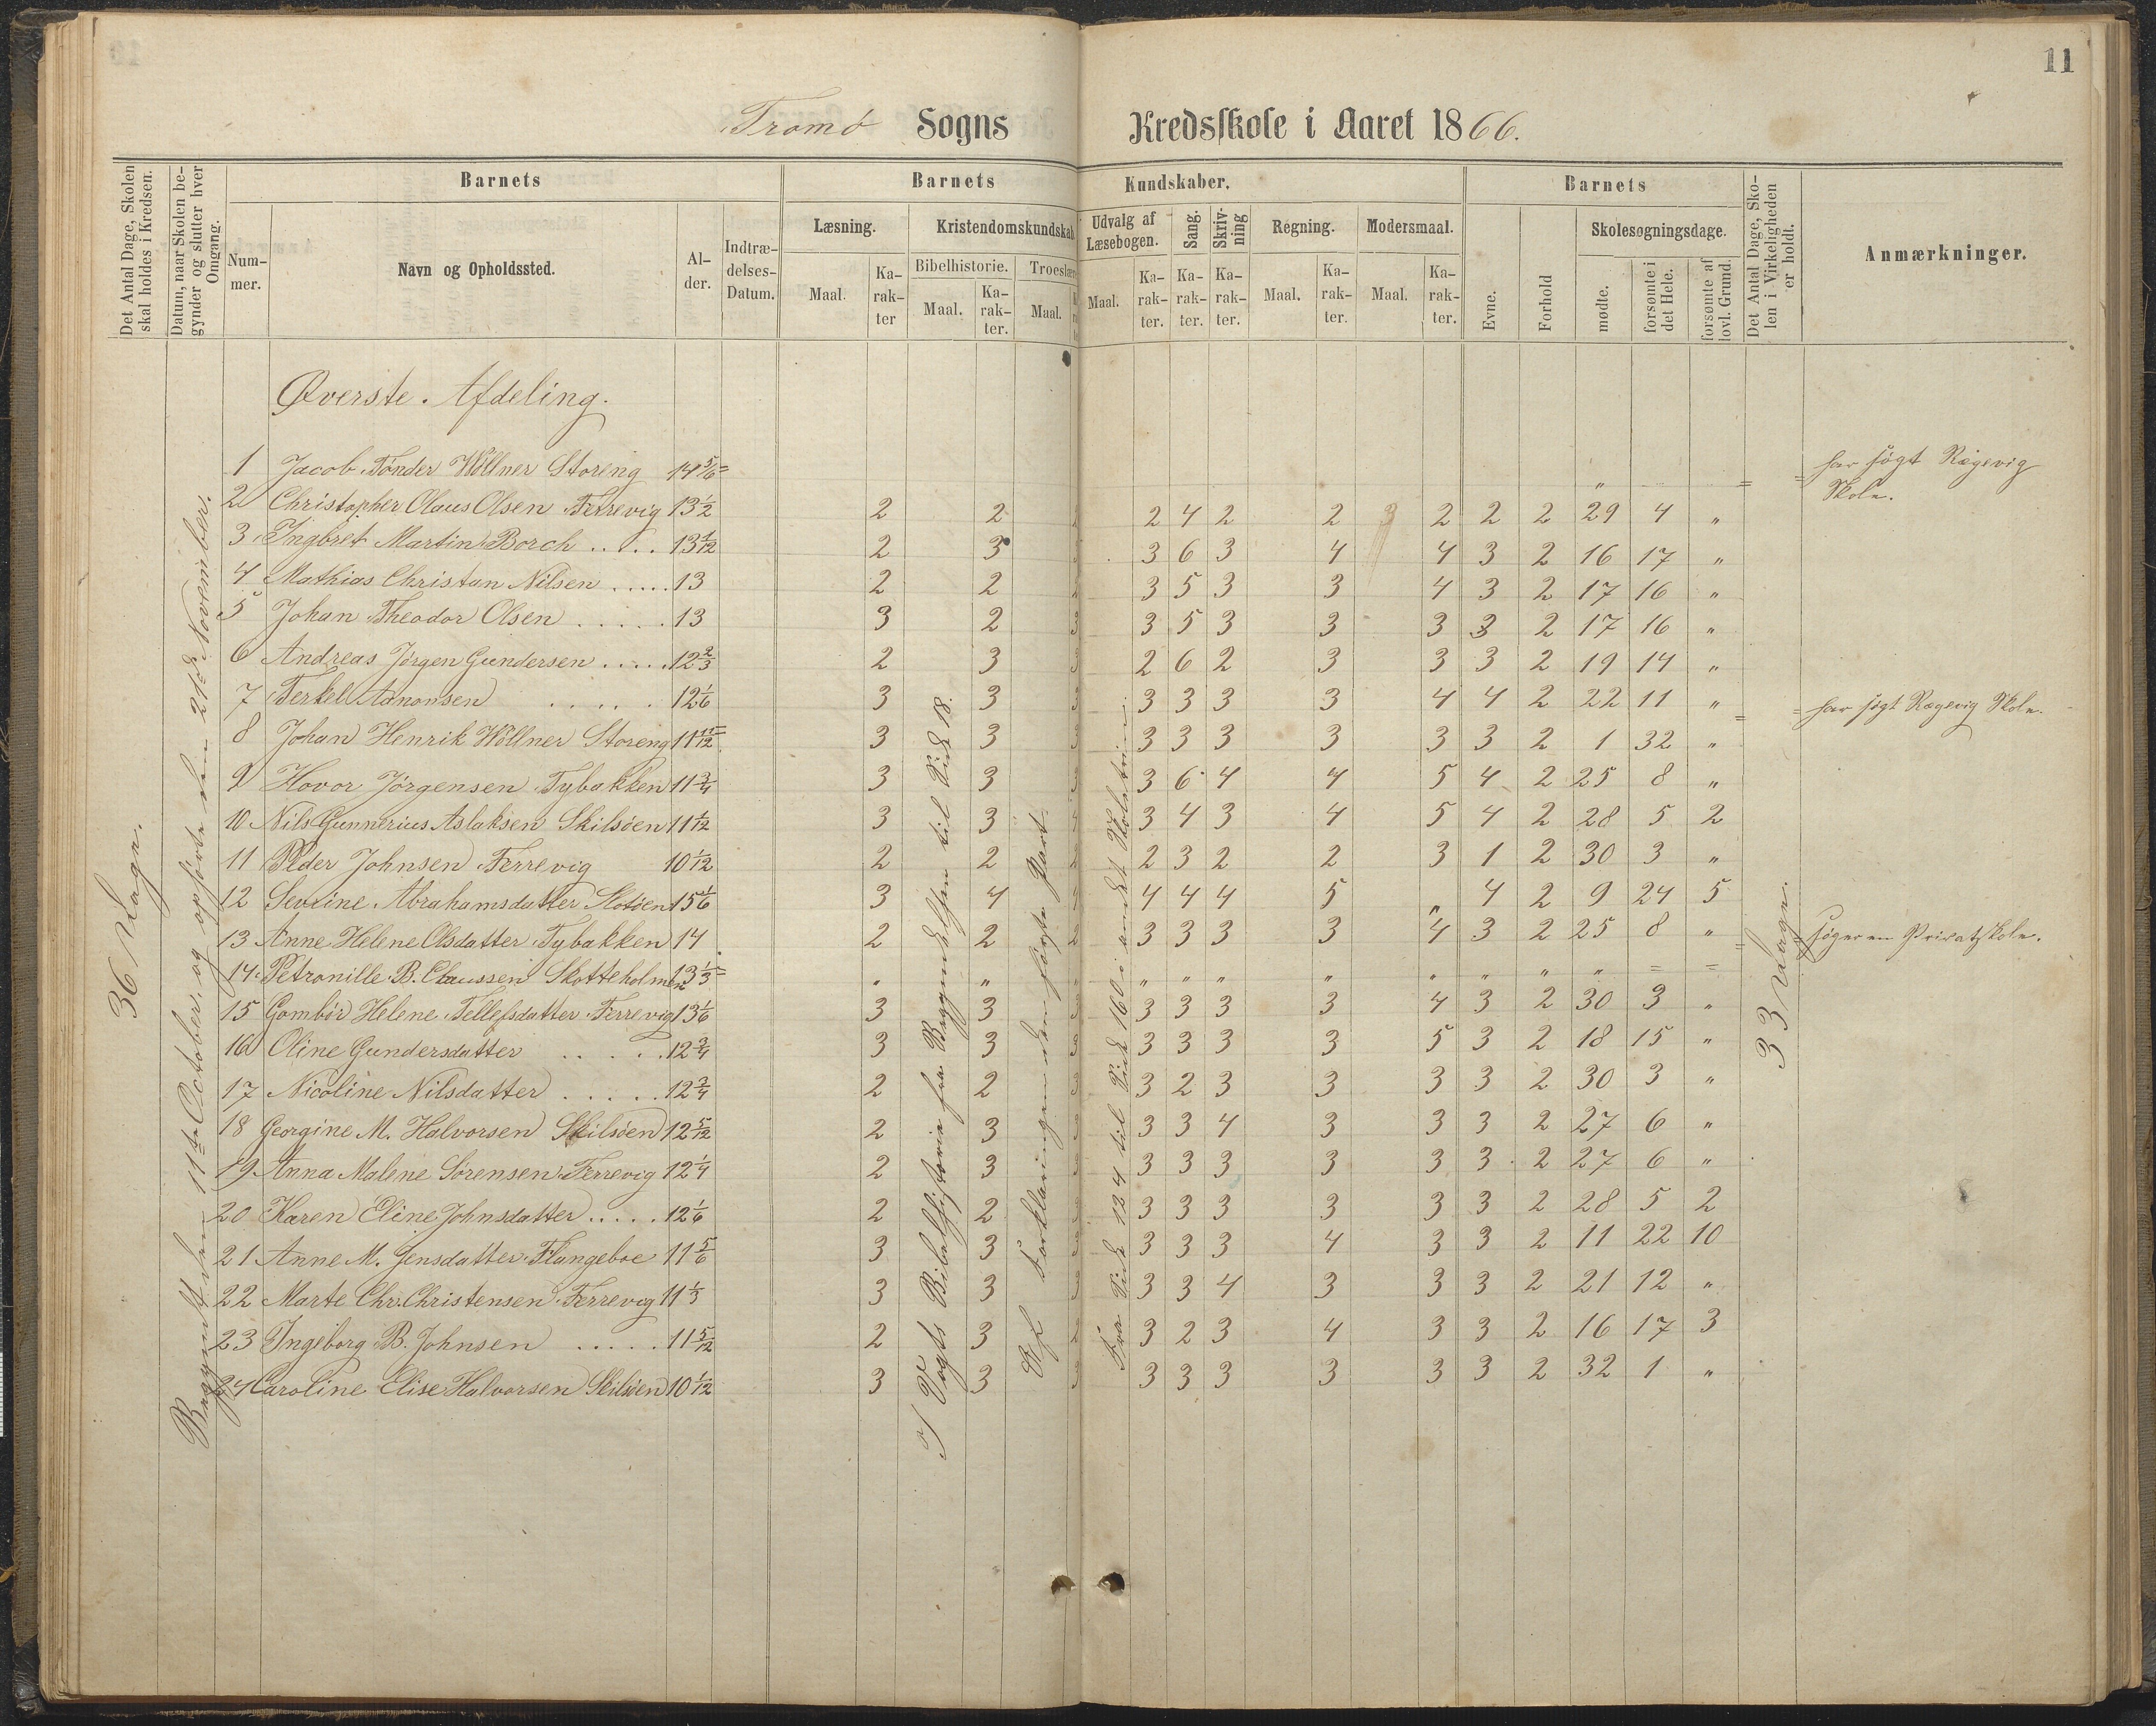 11
Tromø Sogns Kredsskole i Aaret 1866.
Det Antal Dage, Skolen skal holdes i Kredsen.
Datum, naar Skolen begynder og slutter hver Omgang.
Barnets
Nummer.
Navn og Opholdssted.
Alder.
Indtrædelses-Datum.
Barnets Kundskaber.
Læsning.
Maal.
Karakter
Kristendomskundskab
Bibelhistorie.
Maal.
Karakter.
Troeslære
Maal.
Udvalg af Læsebogen.
Maal.
Karakter.
Sang.
Karakter.
Skrivning
Karakter.
Regning.
Maal.
Karakter.
Modersmaal.
Maal.
Karakter.
Barnets
Evne.
Forhold
Skolesøgningsdage.
mødte.
forsømte i det Hele.
forsømte af lovl. Grund.
Det Antal Dage, Skolen i Virkeligheden er holdt.
Anmærkninger.
36 Dage.
Begyndt den 11te October, og ophørte den 21de November.
I Vogts Bibelhistorie fra Begyndelsen til Side 18.
Af Forklaringen den første Part.
Fra Side 124 til Side 160 i andet Skoletrin.
33 Dage.
Øverste Afdeling.
1 Jacob Tønder Wöllner Storeng 14 5/6 = „ = = har søgt Rægevig Skole.
2 Christopher Olaus Olsen Færrevig 13 1/2 2 2 2 4 2 2 3 2 2 2 29 4 „
3 Ingbret Martin Borch ..... 13 1/12 2 3 3 6 3 4 4 3 2 16 17 „
4 Mathias Christan Nilsen ..... 13 2 2 3 5 3 3 4 3 2 17 16 „
5 Johan Theodor Olsen ..... 13 3 2 3 5 3 3 3 3 2 17 16 „
6 Andreas Jørgen Gundersen ..... 12 2/3 2 3 2 6 2 3 3 3 2 19 14 „
7 Terkel Aanonsen ..... 12 1/6 3 3 3 3 3 3 4 4 2 22 11 „
8 Johan Henrik Wöllner Storeng 11 11/12 3 3 3 3 3 3 3 3 2 1 32 „ = = har søgt Rægevig Skole.
9 Hovor Jörgensen Tybakken 11 3/4 3 3 3 6 4 4 5 4 2 25 8 „
10 Nils Gunnerius Aslaksen Skilsøen 11 1/12 3 3 3 4 3 4 5 4 2 28 5 2
11 Peder Johnsen Færrevig 10 1/12 2 2 2 3 2 2 3 1 2 30 3 „
12 Sevrine Abrahamsdatter 15 1/6 3 4 4 4 4 5 „ 4 2 9 24 5
13 Anne Helene Olsdatter Tybakken 14 2 2 3 3 3 3 4 3 2 25 8 „
14 Petronille B. Claussen Skotteholmen 13 1/3 = „ „ „ „ „ „ „ „ „ „ = = = søger en Privatskole.
15 Gombør Helene Tellefsdatter Færrevig 13 1/6 3 3 3 3 3 3 4 3 2 30 3 „
16 Oline Gundersdatter ..... 12 3/4 3 3 3 3 3 3 5 3 2 18 15 „
17 Nicoline Nilsdatter ..... 12 3/4 2 2 3 2 3 3 3 3 2 30 3 „
18 Georgine M. Halvorsen Skilsøen 12 5/12 2 3 3 3 4 3 3 3 2 27 6 „
19 Anna Malene Sørensen Færrevig 12 1/4 2 3 3 3 3 3 3 3 2 27 6 „
20 Karen Eline Johnsdatter ..... 12 1/6 2 2 3 3 3 3 3 3 2 28 5 2
21 Anne M. Jensdatter Flangeboe 11 5/6 3 3 3 3 3 4 3 3 2 11 22 10
22 Marte Chr. Christensen Færrevig 11 1/3 3 3 3 3 4 3 3 3 2 21 12 „
23 Ingeborg B. Johnsen ..... 11 5/12 2 3 3 2 3 4 3 3 2 16 17 3
24 Caroline Elise Halvorsen Skilsøen 10 1/12 3 3 3 3 3 3 3 3 2 32 1 „